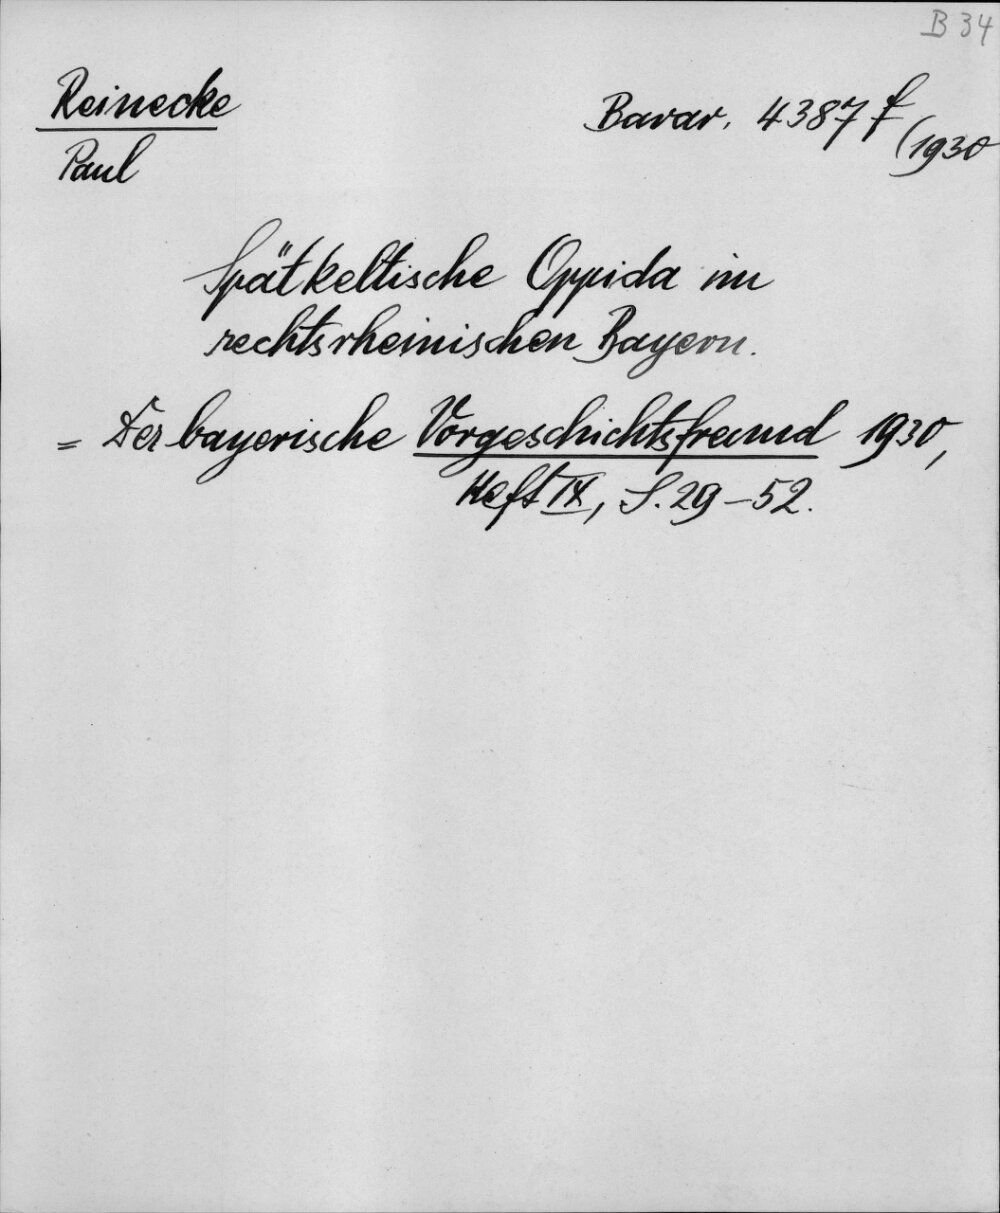 B 34
Reinecke
Bavar. 4387 f
(1930
Paul
Spätkeltische Oppida im
rechtsrheinischen Bayern.
= Der bayerische Vorgeschichtsfreund 1930,
Heft IX, S. 29-52.